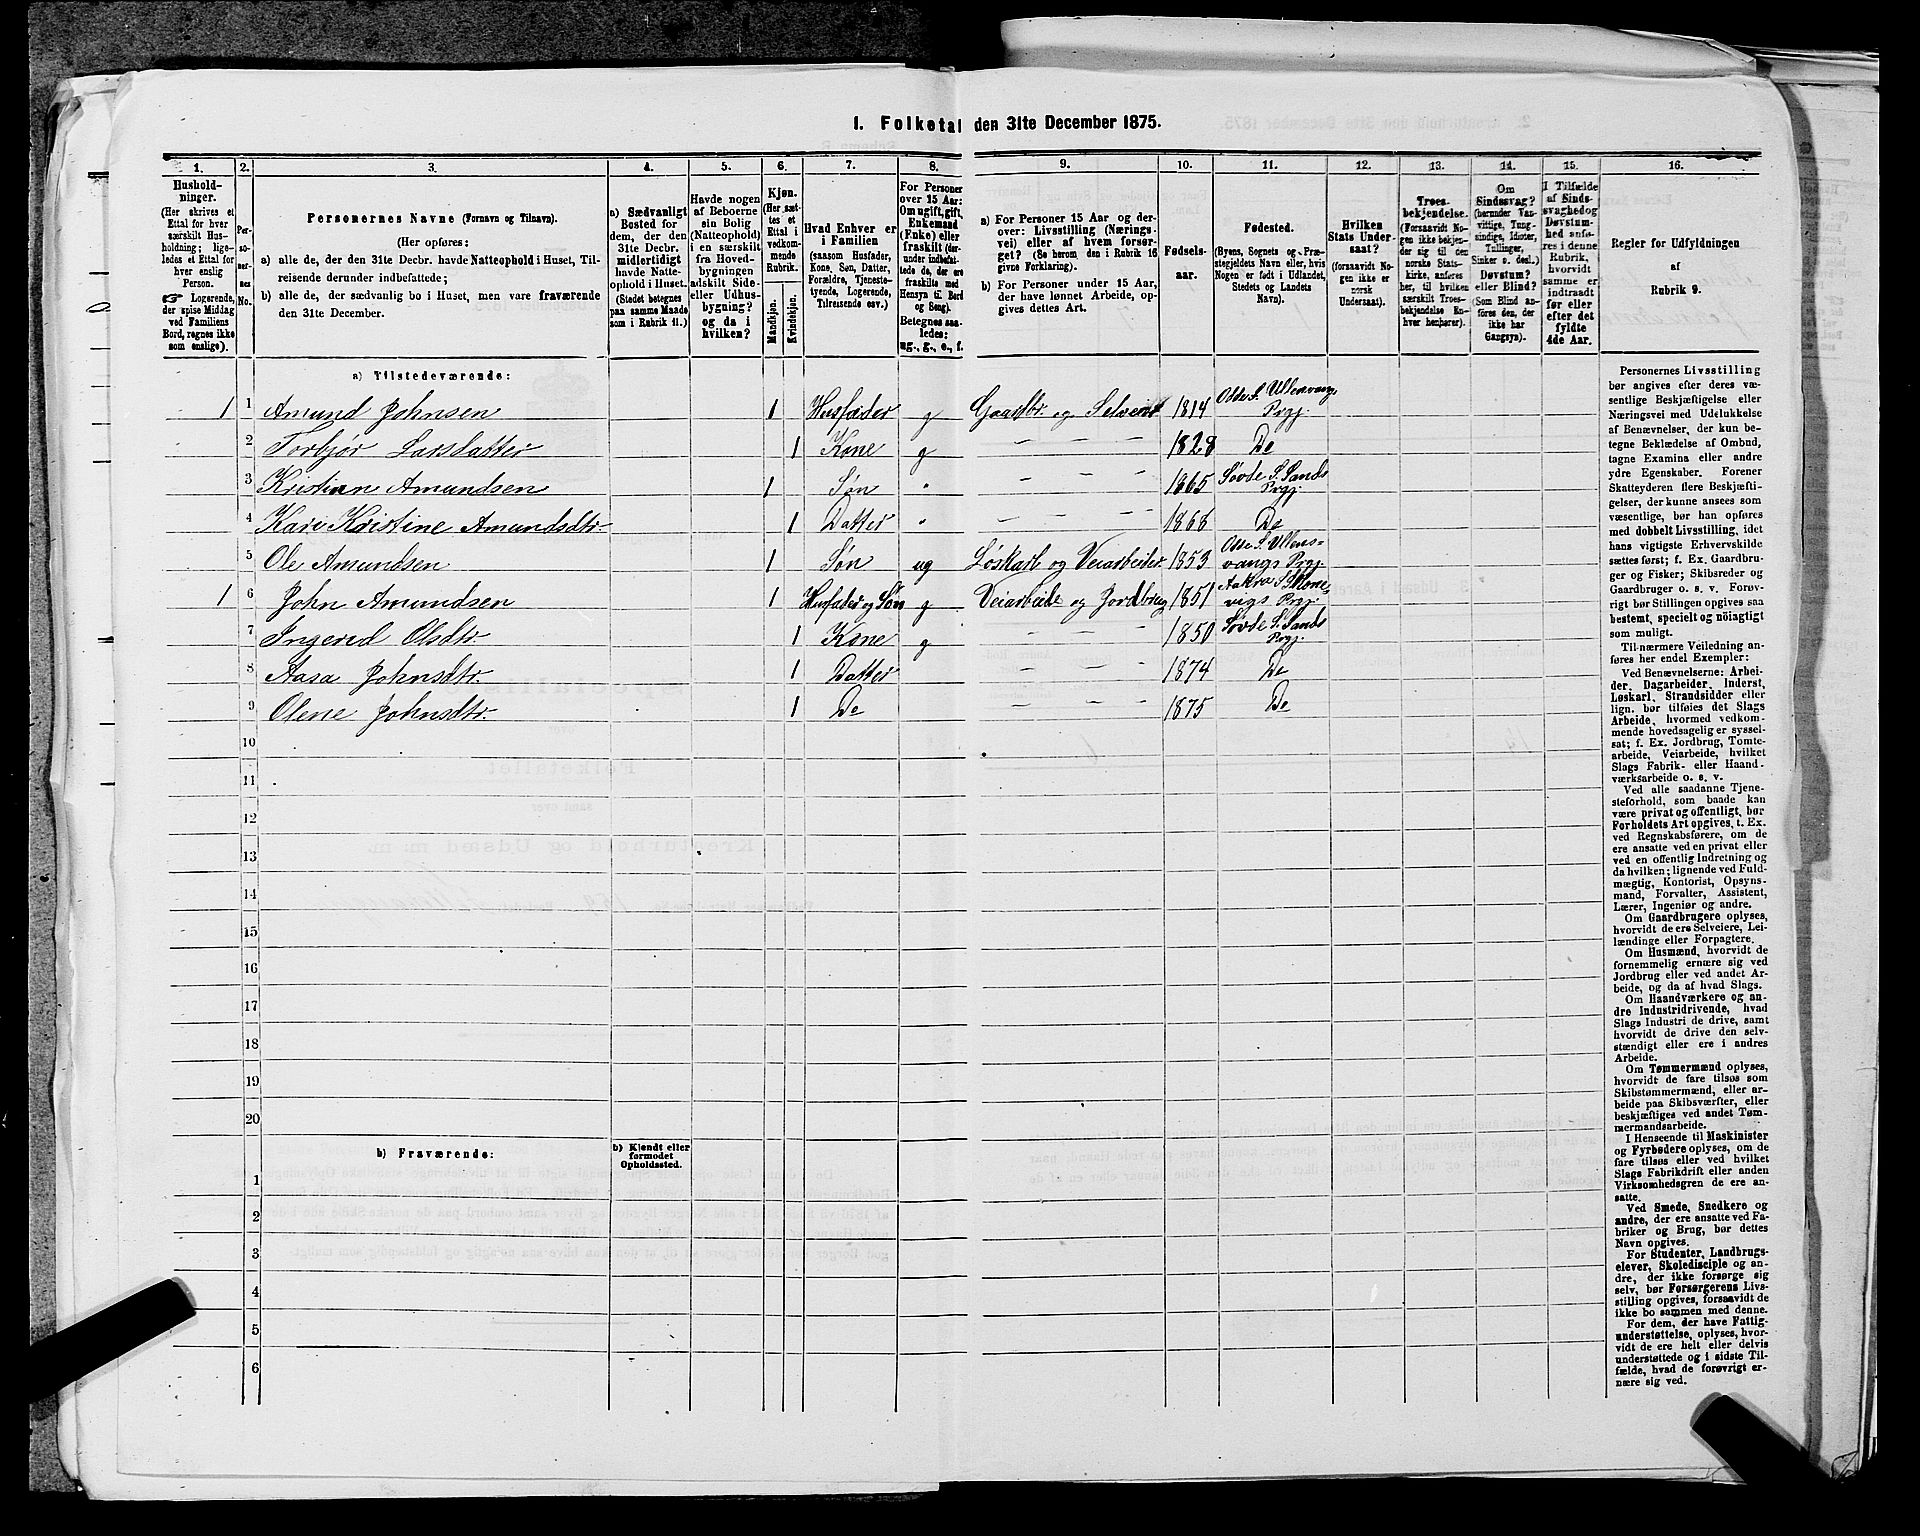 I. Folketal den 31te December 1875.
1.
2.
3.
4.
5.
6.
7.
8.
9.
10.
11.
12.
13.
14.
15.
16.
Hushold-
ninger.
(Her skrives et
Ettal for hver
særskilt Hus-
holdning; lige-
ledes et Ettal for
hver enslig
Person.
☞ Logerende,
der spise Middag
ved Familiens
Bord, regnes ikke
som enslige).
Per-
so-
ner-
nes
No.
Personernes Navne (Fornavn og Tilnavn).
(Her opføres:
a) alle de, der den 31te Decbr. havde Natteophold i Huset, Til-
reisende derunder indbefattede;
b) alle de, der sædvanlig bo i Huset, men vare fraværende
den 31te December.
a) Sædvanligt
Bosted for
dem, der den
31te Decbr.
midlertidigt
havde Natte-
ophold i Huset.
(Stedet betegnes
paa samme Maade
som i Rubrik 11.)
Havde nogen
af Beboerne
sin Bolig
(Natteophold)
i en særskilt
fra Hoved-
bygningen
adskilt Side-
eller Udhus-
bygning?
og da i
hvilken?
Kjøn.
(Her sæt-
tes et
Ettal i
vedkom-
mende
Rubrik.)
Mandkjøn.
Kvindekjøn.
Hvad Enhver er
i Familien
(saasom Husfader,
Kone, Søn, Datter,
Forældre, Tjeneste-
tyende, Logerende,
Tilreisende osv.)
For Personer
over 15 Aar:
Om ugift, gift,
Enkemand
(Enke) eller
fraskilt (der-
under indbefat-
tede de, der ere
fraskilte med
Hensyn til Bord
og Seng).
Betegnes saa-
ledes:
ug., g., e., f.
a) For Personer 15 Aar og der-
over: Livsstilling (Nærings-
vei) eller af hvem forsør-
get? (Se herom den i Rubrik 16
givne Forklaring).
b) For Personer under 15 Aar,
der have lønnet Arbeide, op-
gives dettes Art.
Fødsels-
aar.
Fødested.
(Byens, Sognets og Præ-
stegjeldets Navn eller, hvis
Nogen er født i Udlandet,
Stedets og Landets
Navn).
Hvilken
Stats Under-
saat?
(forsaavidt No-
gen ikke er
norsk
Undersaat).
Troes-
bekjendelse.
(Forsaavidt No-
gen ikke bekjen-
der sig til den
norske Stats-
kirke, anføres
her, til hvilken
særskilt Troes-
bekjendelse En-
hver henhører).
Om
Sindssvag?
(herunder Van-
vittige, Tung-
sindige, Idioter,
Tullinger,
Sinker o. desl.)
Døvstum?
eller Blind?
(Som Blind an-
føres den, der
ikke har
Gangsyn).
I Tilfælde
af Sinds-
svaghed og
Døvstum-
hed anfø-
res i denne
Rubrik,
hvorvidt
samme er
indtraadt
før eller
efter det
fyldte
4de Aar.
Regler for Udfyldningen
af
Rubrik 9.
a) Tilstedeværende:
1 1 Amund Johnsen 1 Husfader g Gaardbr. og Selveier 1814 Odde S. Ullensvangs Prgj.
2 Torbjør Larsdatter 1 Kone g – – – 1828 De
3 Kristian Amundsen 1 Søn " – – – 1865 Søvde S. Sands Prgj.
4 Kari Kristine Amundsdtr. 1 Datter " – – – 1868 De
5 Ole Amundsen 1 Søn ug Løskarl og Veiarbeider 1853 Odde S. Ullens-
vangs Prgj.
1 6 John Amundsen 1 Husfader og Søn g Veiarbeide og Jordbrug 1851 Aakra S. Skone-
vigs Prgj.
7 Ingered Olsdtr. 1 Kone g – – – 1850 Søvde S. Sands Prgj.
8 Aasa Johnsdtr. 1 Datter – – – 1874 De
9 Olene Johnsdtr. 1 De – – – 1875 De
10
11
12
13
14
15
16
17
18
19
20
b) Fraværende:
b) Kjendt eller
formodet
Opholdssted.
1
2
3
4
5
6
Personernes Livsstilling
bør angives efter deres væ-
sentlige Beskjæftigelse eller
Næringsvei med Udelukkelse
af Benævnelser, der kun be-
tegne Beklædelse af Ombud,
tagne Examina eller andre
ydre Egenskaber. Forener
Skatteyderen flere Beskjæfti-
gelser, der kunne ansees som
væsentlige, bør han opføres
med dobbelt Livsstilling, idet
hans vigtigste Erhvervskilde
sættes først; f. Ex. Gaardbru-
ger og Fisker; Skibsreder og
Gaardbruger o. s. v. Forøv-
rigt bør Stillingen opgives saa
bestemt, specielt og nöiagtigt
som muligt.
Til nærmere Veiledning an-
føres her endel Exempler:
Ved Benævnelserne: Arbei-
der, Dagarbeider, Inderst,
Løskarl, Strandsidder eller
lign. bør tilføies det Slags
Arbeide, hvormed vedkom-
mende hovedsagelig er syssel-
sat; f. Ex. Jordbrug, Tomte-
arbeide, Veiarbeide, hvilket
Slags Fabrik- eller Haand-
værksarbeide o. s. v.
Ved alle saadanne Tjene-
steforhold, som baade kan
være privat og offentligt, bør
Forholdets Art opgives, t. Ex.
ved Regnskabsførere, om de
ere ansatte ved en privat eller
ved en offentlig Indretning og
da hvilken; lignende ved Fuld-
mægtig, Kontorist, Opsyns-
mand, Forvalter, Assistent,
Lærer, Ingeniør og andre.
Om Gaardbrugere oplyses,
hvorvidt de ere Selveiere, Lei-
lændinge eller Forpagtere.
Om Husmænd, hvorvidt de
fornemmelig ernære sig ved
Jordbrug eller ved andet Ar-
beide, og da af hvad Slags.
Om Haandværkere og an-
dre Industridrivende, hvad
Slags Industri de drive, samt
hvorvidt de drive den selv-
stændigt eller ere i andres
Arbeide.
Om Tømmermænd oplyses,
hvorvidt de fare tilsøs som
Skibstømmermænd, eller ar-
beide paa Skibsværfter, eller
beskjæftiges ved andet Tøm-
mermandsarbeide.
I Henseende til Maskinister
og Fyrbødere oplyses, om de
fare tilsøs eller ved hvilket
Slags Fabrikdrift eller anden
Virksomhedsgren de ere an-
satte.
Ved Smede, Snedkere og
andre, der ere ansatte ved Fa-
briker og Brug, bør dettes
Navn opgives.
For Studenter, Landbrugs-
elever, Skoledisciple og an-
dre, der ikke forsørge sig
selv, bør Forsørgerens Livs-
stilling opgives, forsaavidt de
ikke bo sammen med denne.
For dem, der have Fattig-
understøttelse, oplyses, hvor-
vidt de ere helt eller delvis
understøttede og i sidste Til-
fælde, hvad de forøvrigt er-
nære sig ved.